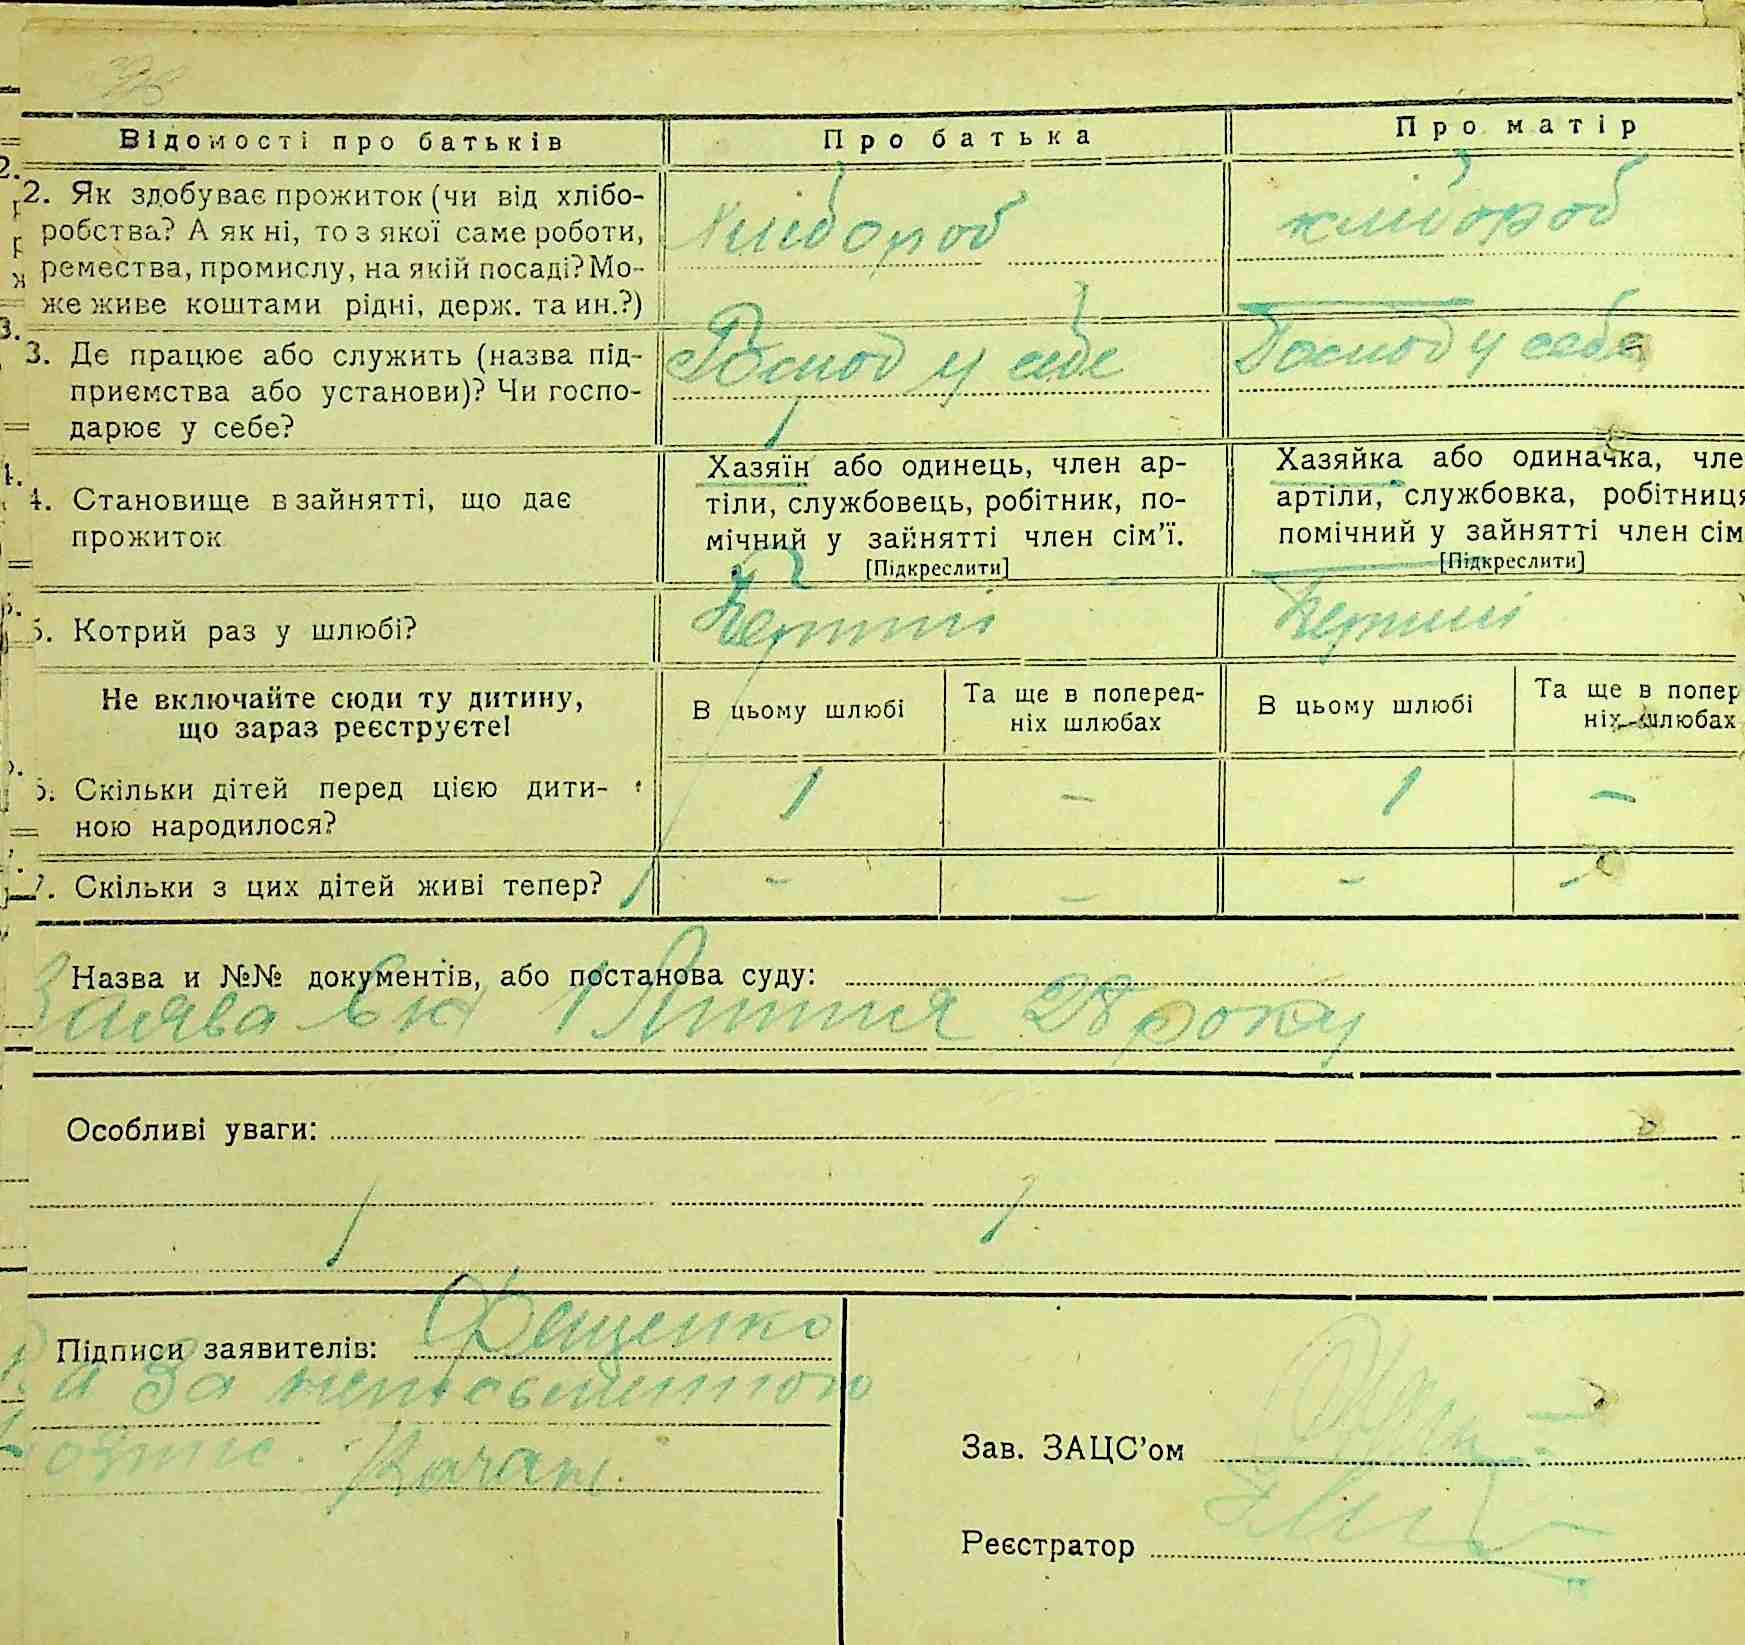 Відомості про батьків
Про батька
Про матір
2. Як здобуває прожиток (чи від хлібо-
робства? А як ні, то з якої саме роботи,
ремества, промислу, на якій посаді? Мо-
же живе коштами рідні, держ. та ин.?)
Хлібороб
хлібороб
3. Де працює або служить (назва під-
приємства або установи)? Чи госпо-
дарює у себе?
Господ у себе
Господ у себе
4. Становище в зайнятті, що дає
прожиток
Хазяїн або одинець, член ар-
тіли, службовець, робітник, по-
мічний у зайнятті член сім'ї.
[Підкреслити]
Хазяйка або одиначка, чле
артіли, службовка, робітниця
помічний у зайнятті член сім
[Підкреслити]
5. Котрий раз у шлюбі?
Перший
Перший
Не включайте сюди ту дитину,
що зараз реєструєте!
В цьому шлюбі
Та ще в поперед-
ніх шлюбах
В цьому шлюбі
Та ще в попер
ніх шлюбах
6. Скільки дітей перед цією дити-
ною народилося?
1
-
1
-
7. Скільки з цих дітей живі тепер?
-
-
-
-
Назва и №№ документів, або постанова суду:
Заява 1 Липня 28 року
Особливі уваги:
Підписи заявителів:
Фещенко
а За неписьменного
Зав. ЗАЦС'ом
Реєстратор